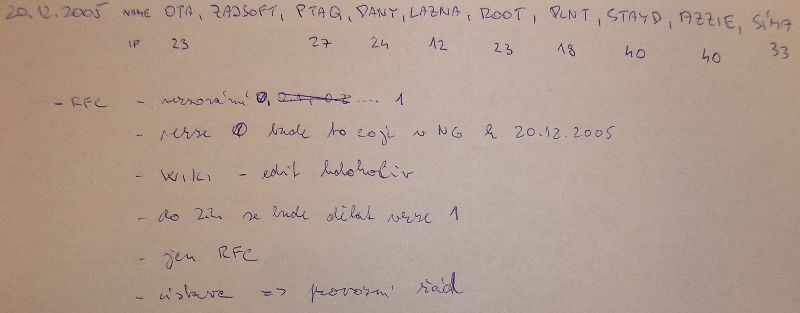 20.12.2005 NAME OTA, ZADSOFT, PTAQ, DANY, LAZNA, ROOT, PLNT, STAYD, AZZIE, SÍMA
IP 23 27 24 12 23 18 40 40 33
- RFC - verzování 0, 0.1, 0.2 .... 1
- verze 0 bude to co je v NG k 20.12.2005
- WIKI - edit kdokoliv
- do se bude dělat verze 1
- jen RFC
- ústava => provozní řád